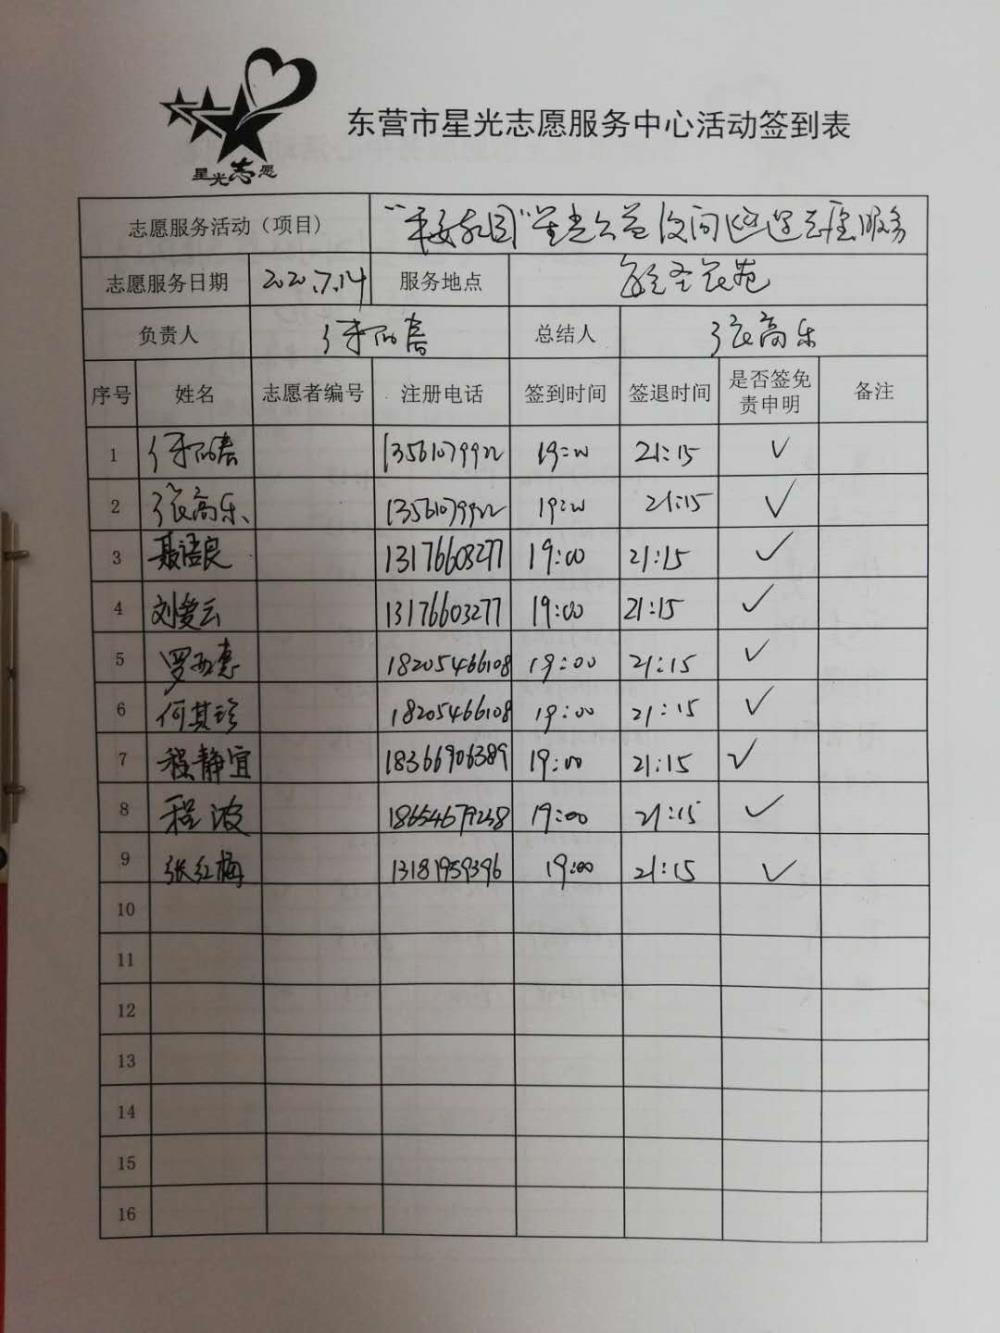 星光志愿
东营市星光志愿服务中心活动签到表
志愿服务活动（项目） "平安家园"星光公益夜间巡逻志愿服务
志愿服务日期 2020.7.14 服务地点
负责人 总结人 张高乐
序号 姓名 志愿者编号 注册电话 签到时间 签退时间 是否签免责申明 备注
1 13561079922 19:00 21:15 ✓
2 张高乐 13561079922 19:00 21:15 ✓
3 聂语良 13176603277 19:00 21:15 ✓
4 刘爱云 13176603277 19:00 21:15 ✓
5 18205466108 19:00 21:15 ✓
6 何其珍 18205466108 19:00 21:15 ✓
7 程静宜 18366906389 19:00 21:15 ✓
8 程波 18654679238 19:00 21:15 ✓
9 张红梅 13181959396 19:00 21:15 ✓
10
11
12
13
14
15
16